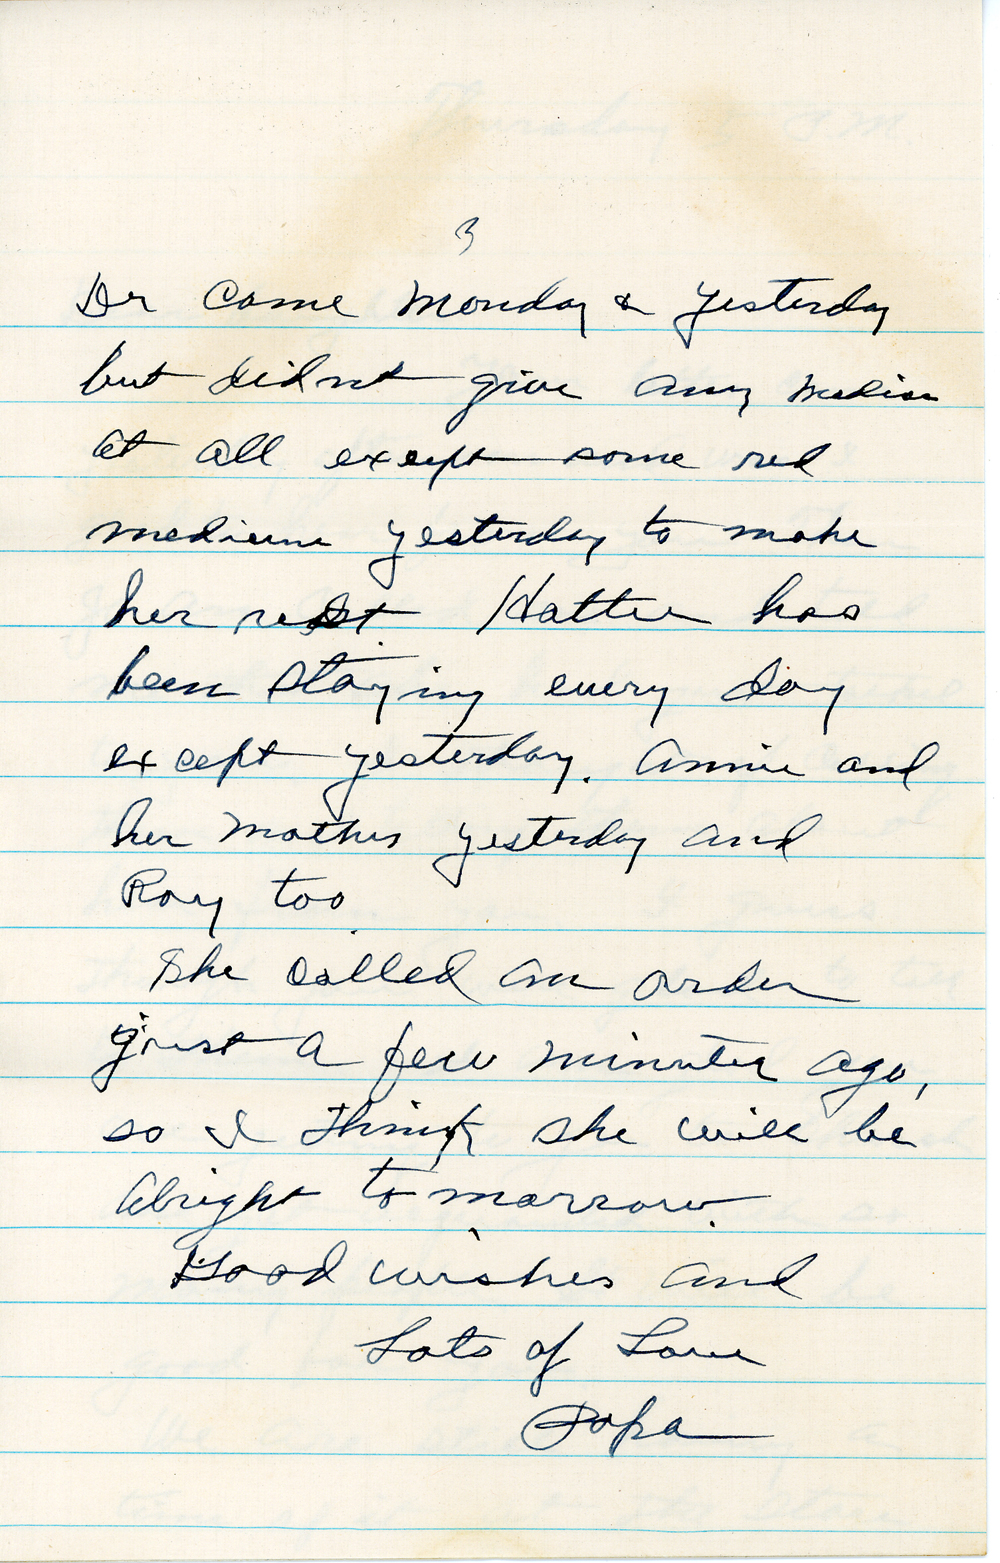 3
Dr came Monday & yesterday
but didnt give any medicin
at all except some red
medicine yesterday to make
her rest Hattie has
been staying every day
except yesterday. Annie and
her mother yesterday and
Roy too
She called an order
just a few minutes ago,
so I think she will be
alright tomorrow.
Good wishes and
Lots of Love
Popa